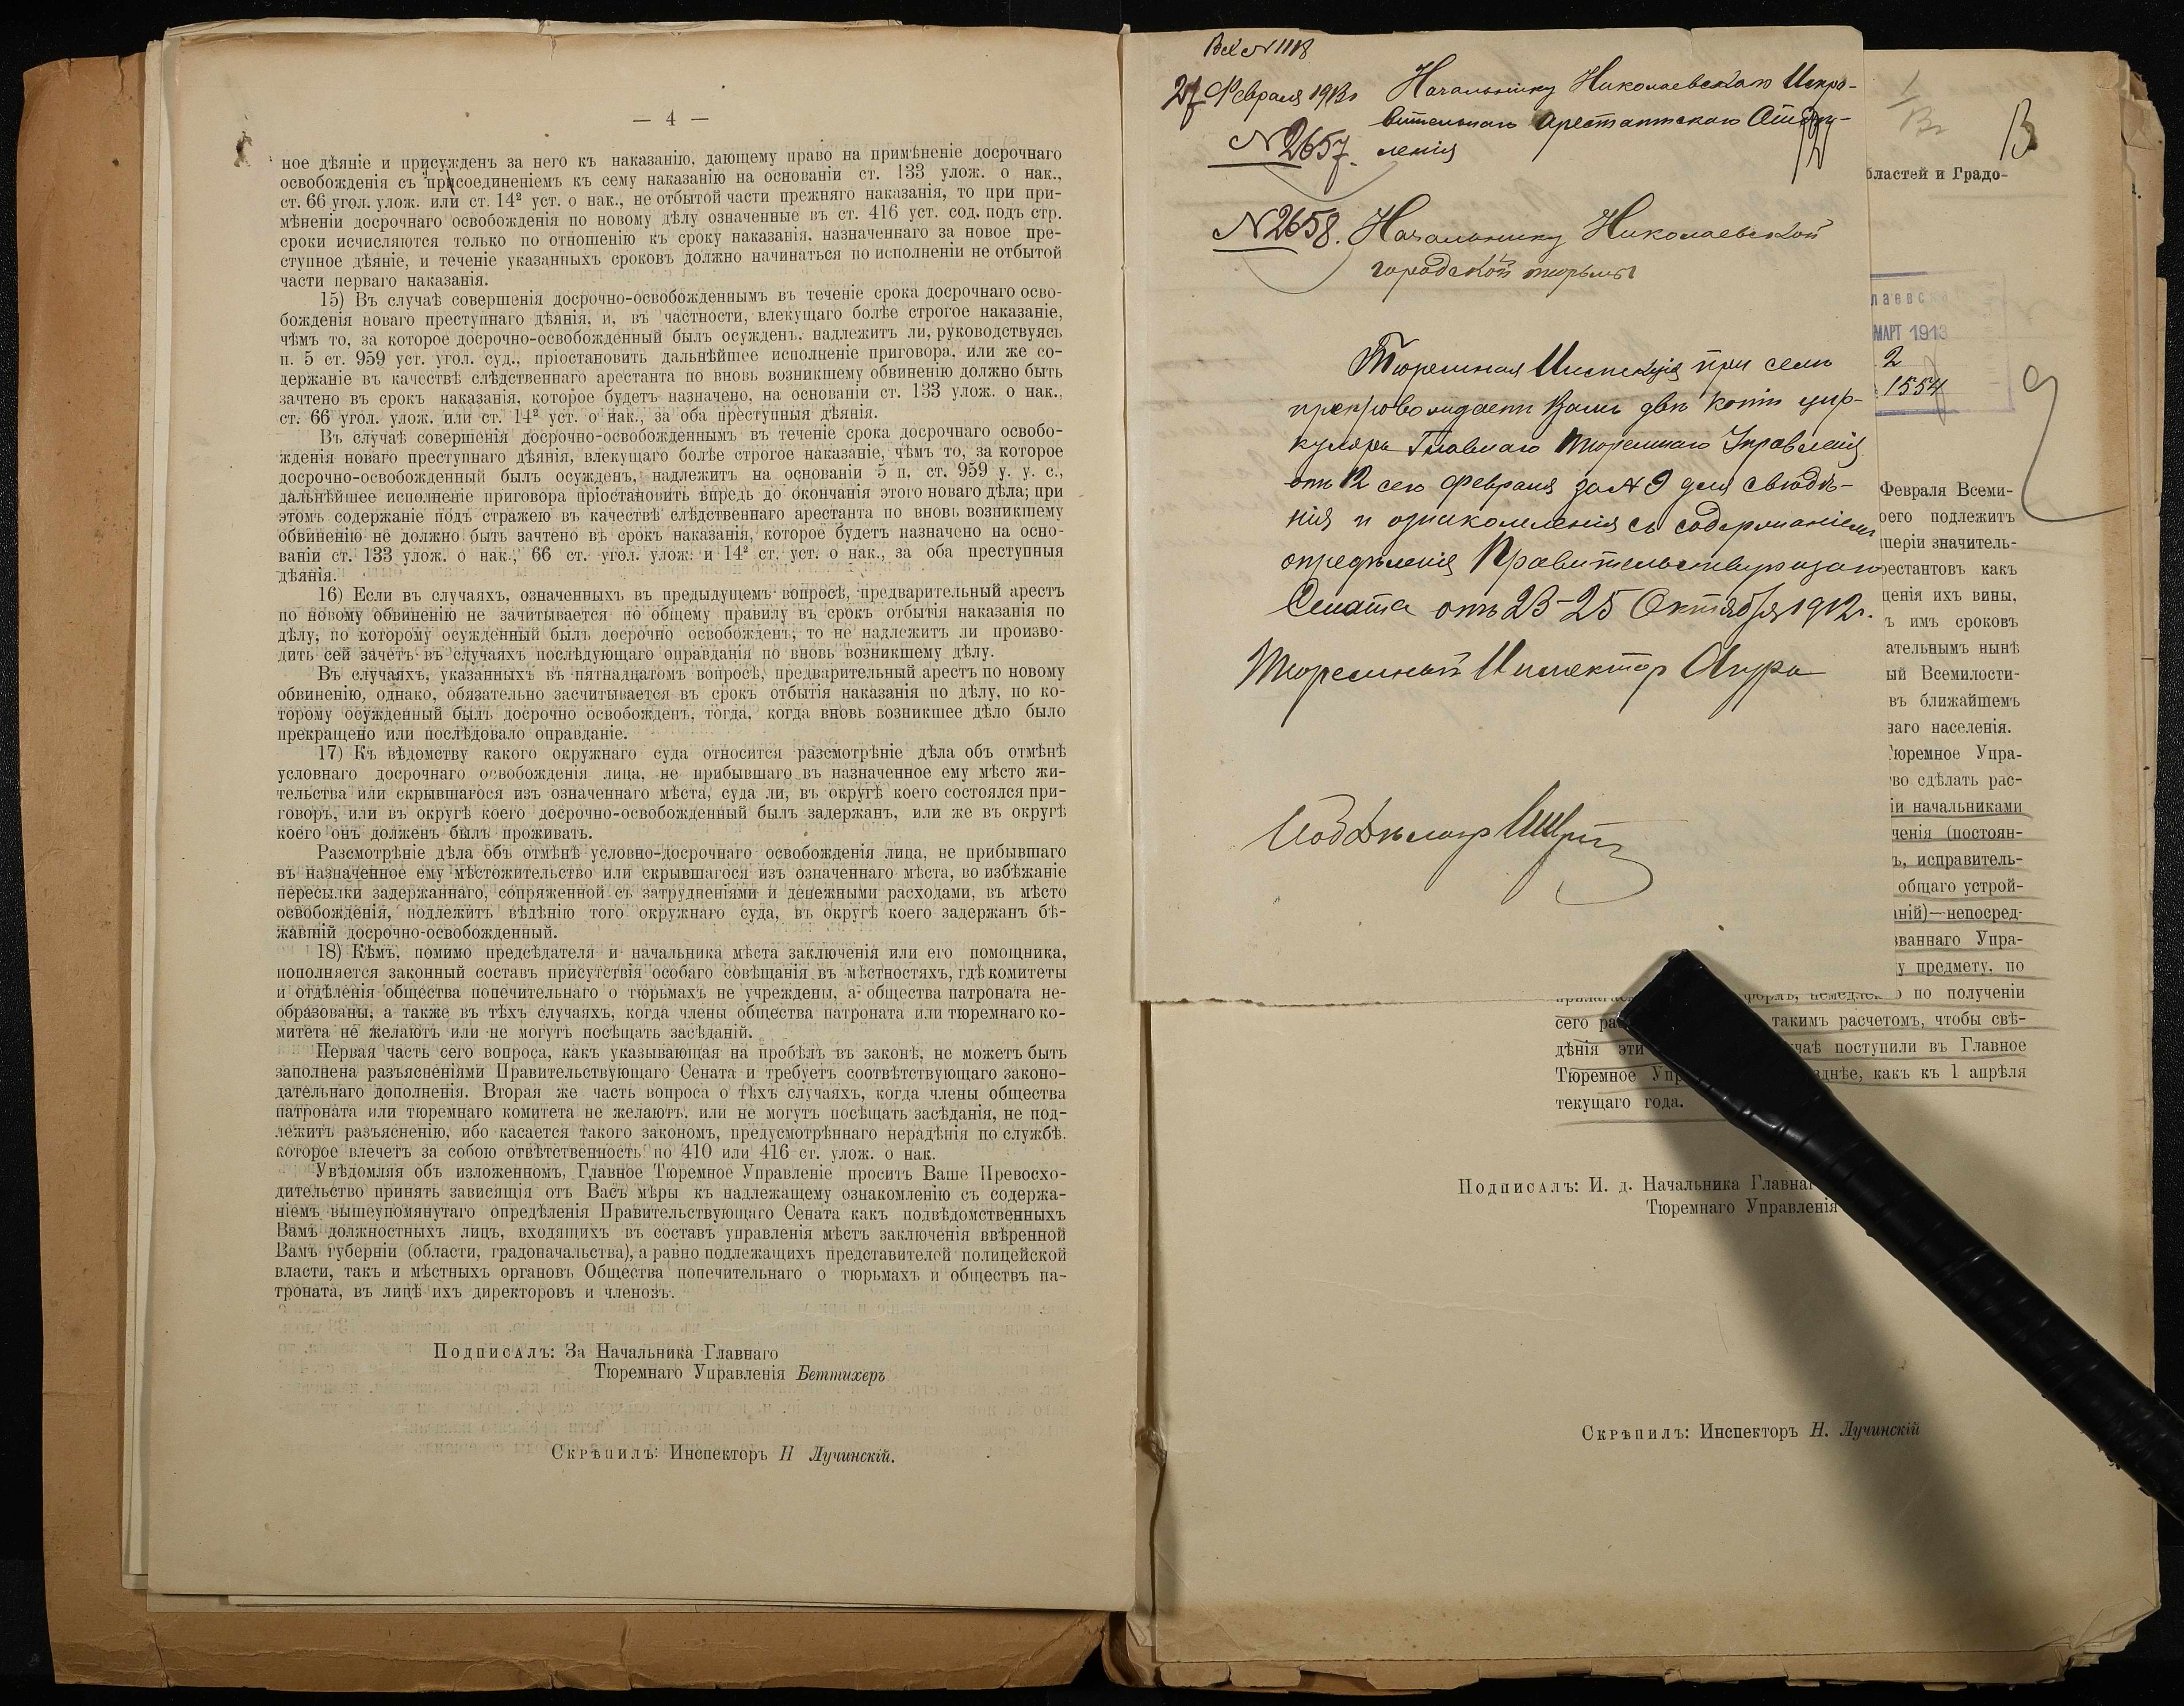 — 4 —
ное дѣяніе и присужденъ за него къ наказанію, дающему право на примѣненіе досрочнаго
освобожденія съ присоединеніемъ къ сему наказанію на основаніи ст. 133 улож. о нак.,
ст. 66 угол. улож. или ст. 14² уст. о нак., не отбытой части прежняго наказанія, то при при-
мѣненіи досрочнаго освобожденія по новому дѣлу означенные въ ст. 416 уст. сод. подъ стр.
сроки исчисляются только по отношенію къ сроку наказанія, назначеннаго за новое пре-
ступное дѣяніе, и теченіе указанныхъ сроковъ должно начинаться по исполненіи не отбытой
части перваго наказанія.
15) Въ случаѣ совершенія досрочно-освобожденнымъ въ теченіе срока досрочнаго осво-
божденія новаго преступнаго дѣянія, и, въ частности, влекущаго болѣе строгое наказаніе,
чѣмъ то, за которое досрочно-освобожденный былъ осужденъ, надлежитъ ли, руководствуясь
п. 5 ст. 959 уст. угол. суд., пріостановить дальнѣйшее исполненіе приговора, или же со-
держаніе въ качествѣ слѣдственнаго арестанта по вновь возникшему обвиненію должно быть
зачтено въ срокъ наказанія, которое будетъ назначено, на основаніи ст. 133 улож. о нак.,
ст. 66 угол. улож. или ст. 14² уст. о нак., за оба преступныя дѣянія.
Въ случаѣ совершенія досрочно-освобожденнымъ въ теченіе срока досрочнаго освобо-
жденія новаго преступнаго дѣянія, влекущаго болѣе строгое наказаніе, чѣмъ то, за которое
досрочно-освобожденный былъ осужденъ, надлежитъ на основаніи 5 п. ст. 959 у. у. с.,
дальнѣйшее исполненіе приговора пріостановить впредь до окончанія этого новаго дѣла; при
этомъ содержаніе подъ стражею въ качествѣ слѣдственнаго арестанта по вновь возникшему
обвиненію не должно быть зачтено въ срокъ наказанія, которое будетъ назначено на осно-
ваніи ст. 133 улож. о нак., 66 ст. угол. улож. и 14² ст. уст. о нак., за оба преступныя
дѣянія.
16) Если въ случаяхъ, означенныхъ въ предыдущемъ вопросѣ, предварительный арестъ
по новому обвиненію не зачитывается по общему правилу въ срокъ отбытія наказанія по
дѣлу, по которому осужденный былъ досрочно освобожденъ, то не надлежитъ ли произво-
дить сей зачетъ въ случаяхъ послѣдующаго оправданія по вновь возникшему дѣлу.
Въ случаяхъ, указанныхъ въ пятнадцатомъ вопросѣ, предварительный арестъ по новому
обвиненію, однако, обязательно засчитывается въ срокъ отбытія наказанія по дѣлу, по ко-
торому осужденный былъ досрочно освобожденъ, тогда, когда вновь возникшее дѣло было
прекращено или послѣдовало оправданіе.
17) Къ вѣдомству какого окружнаго суда относится разсмотрѣніе дѣла объ отмѣнѣ
условнаго досрочнаго освобожденія лица, не прибывшаго въ назначенное ему мѣсто жи-
тельства или скрывшагося изъ означеннаго мѣста, суда ли, въ округѣ коего состоялся при-
говоръ, или въ округѣ коего досрочно-освобожденный былъ задержанъ, или же въ округѣ
коего онъ долженъ былъ проживать.
Разсмотрѣніе дѣла объ отмѣнѣ условно-досрочнаго освобожденія лица, не прибывшаго
въ назначенное ему мѣстожительство или скрывшагося изъ означеннаго мѣста, во избѣжаніе
пересылки задержаннаго, сопряженной съ затрудненіями и денежными расходами, въ мѣсто
освобожденія, подлежитъ вѣдѣнію того окружнаго суда, въ округѣ коего задержанъ бѣ-
жавшій досрочно-освобожденный.
18) Кѣмъ, помимо предсѣдателя и начальника мѣста заключенія или его помощника,
пополняется законный составъ присутствія особаго совѣщанія въ мѣстностяхъ, гдѣ комитеты
и отдѣленія общества попечительнаго о тюрьмахъ не учреждены, а общества патроната не-
образованы, а также въ тѣхъ случаяхъ, когда члены общества патроната или тюремнаго ко-
митета не желаютъ или не могутъ посѣщать засѣданій.
Первая часть сего вопроса, какъ указывающая на пробѣлъ въ законѣ, не можетъ быть
заполнена разъясненіями Правительствующаго Сената и требуетъ соотвѣтствующаго законо-
дательнаго дополненія. Вторая же часть вопроса о тѣхъ случаяхъ, когда члены общества
патроната или тюремнаго комитета не желаютъ, или не могутъ посѣщать засѣданія, не под-
лежитъ разъясненію, ибо касается такого закономъ, предусмотрѣннаго нерадѣнія по службѣ,
которое влечетъ за собою отвѣтственность по 410 или 416 ст. улож. о нак.
Увѣдомляя объ изложенномъ, Главное Тюремное Управленіе проситъ Ваше Превосхо-
дительство принять зависящія отъ Васъ мѣры къ надлежащему ознакомленію съ содержа-
ніемъ вышеупомянутаго опредѣленія Правительствующаго Сената какъ подвѣдомственныхъ
Вамъ должностныхъ лицъ, входящихъ въ составъ управленія мѣстъ заключенія ввѣренной
Вамъ губерніи (области, градоначальства), а равно подлежащихъ представителей полицейской
власти, такъ и мѣстныхъ органовъ Общества попечительнаго о тюрьмахъ и обществъ па-
троната, въ лицѣ ихъ директоровъ и членовъ.
Подписалъ: За Начальника Главнаго
Тюремнаго Управленія Беттихеръ
Скрѣпилъ: Инспекторъ Н Лучинскій.
Вх № 1118
27 Февраля 1913г
Начальнику Николаевскаго Испра-
вительнаго Арестантскаго Отдѣ-
ленія
№ 2657.
№ 2658. Начальнику Николаевской
городской тюрьмы
Тюремная Инспекція при семъ
препровождаетъ Вамъ двѣ копіи цир-
куляра Главнаго Тюремнаго Управленія
отъ 12 сего февраля за № 9 для свѣдѣ-
нія и ознакомленія съ содержаніемъ
опредѣленія Правительствующаго
Сената отъ 23-25 Октября 1912г.
Тюремный Инспекторъ
12
13
бластей и Градо-
лаевск
МАРТ 1913
2
1554
Февраля Всеми-
оего подлежитъ
періи значитель-
рестантовъ какъ
щенія ихъ вины,
ъ имъ сроковъ
ательнымъ нынѣ
ый Всемилости-
въ ближайшемъ
наго населенія.
Тюремное Упра-
во сдѣлать рас-
іи начальниками
ченія (постоян-
ъ, исправитель-
общаго устрой-
аній)—непосред-
званнаго Упра-
у предмету, по
формѣ, немедле о по полученіи
сего ра такимъ расчетомъ, чтобы свѣ-
дѣнія эти чаѣ поступили въ Главное
Тюремное Упр зднѣе, какъ къ 1 апрѣля
текущаго года.
Подписалъ: И. д. Начальника Главнаг
Тюремнаго Управленія
Скрѣпилъ: Инспекторъ Н. Лучинскій